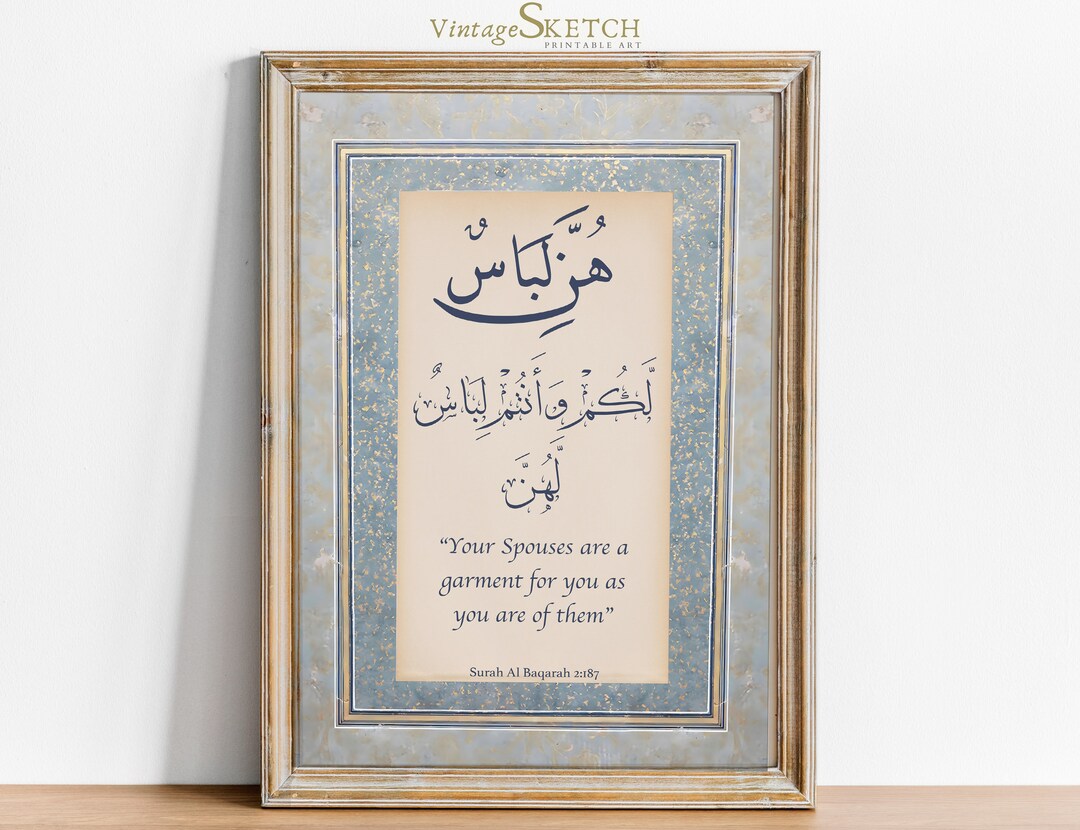 VintageSKETCH
PRINTABLE ART
هُنَّ لِبَاسٌ
لَّكُمْ وَأَنتُمْ لِبَاسٌ
لَّهُنَّ
“Your Spouses are a
garment for you as
you are of them”
Surah Al Baqarah 2:187